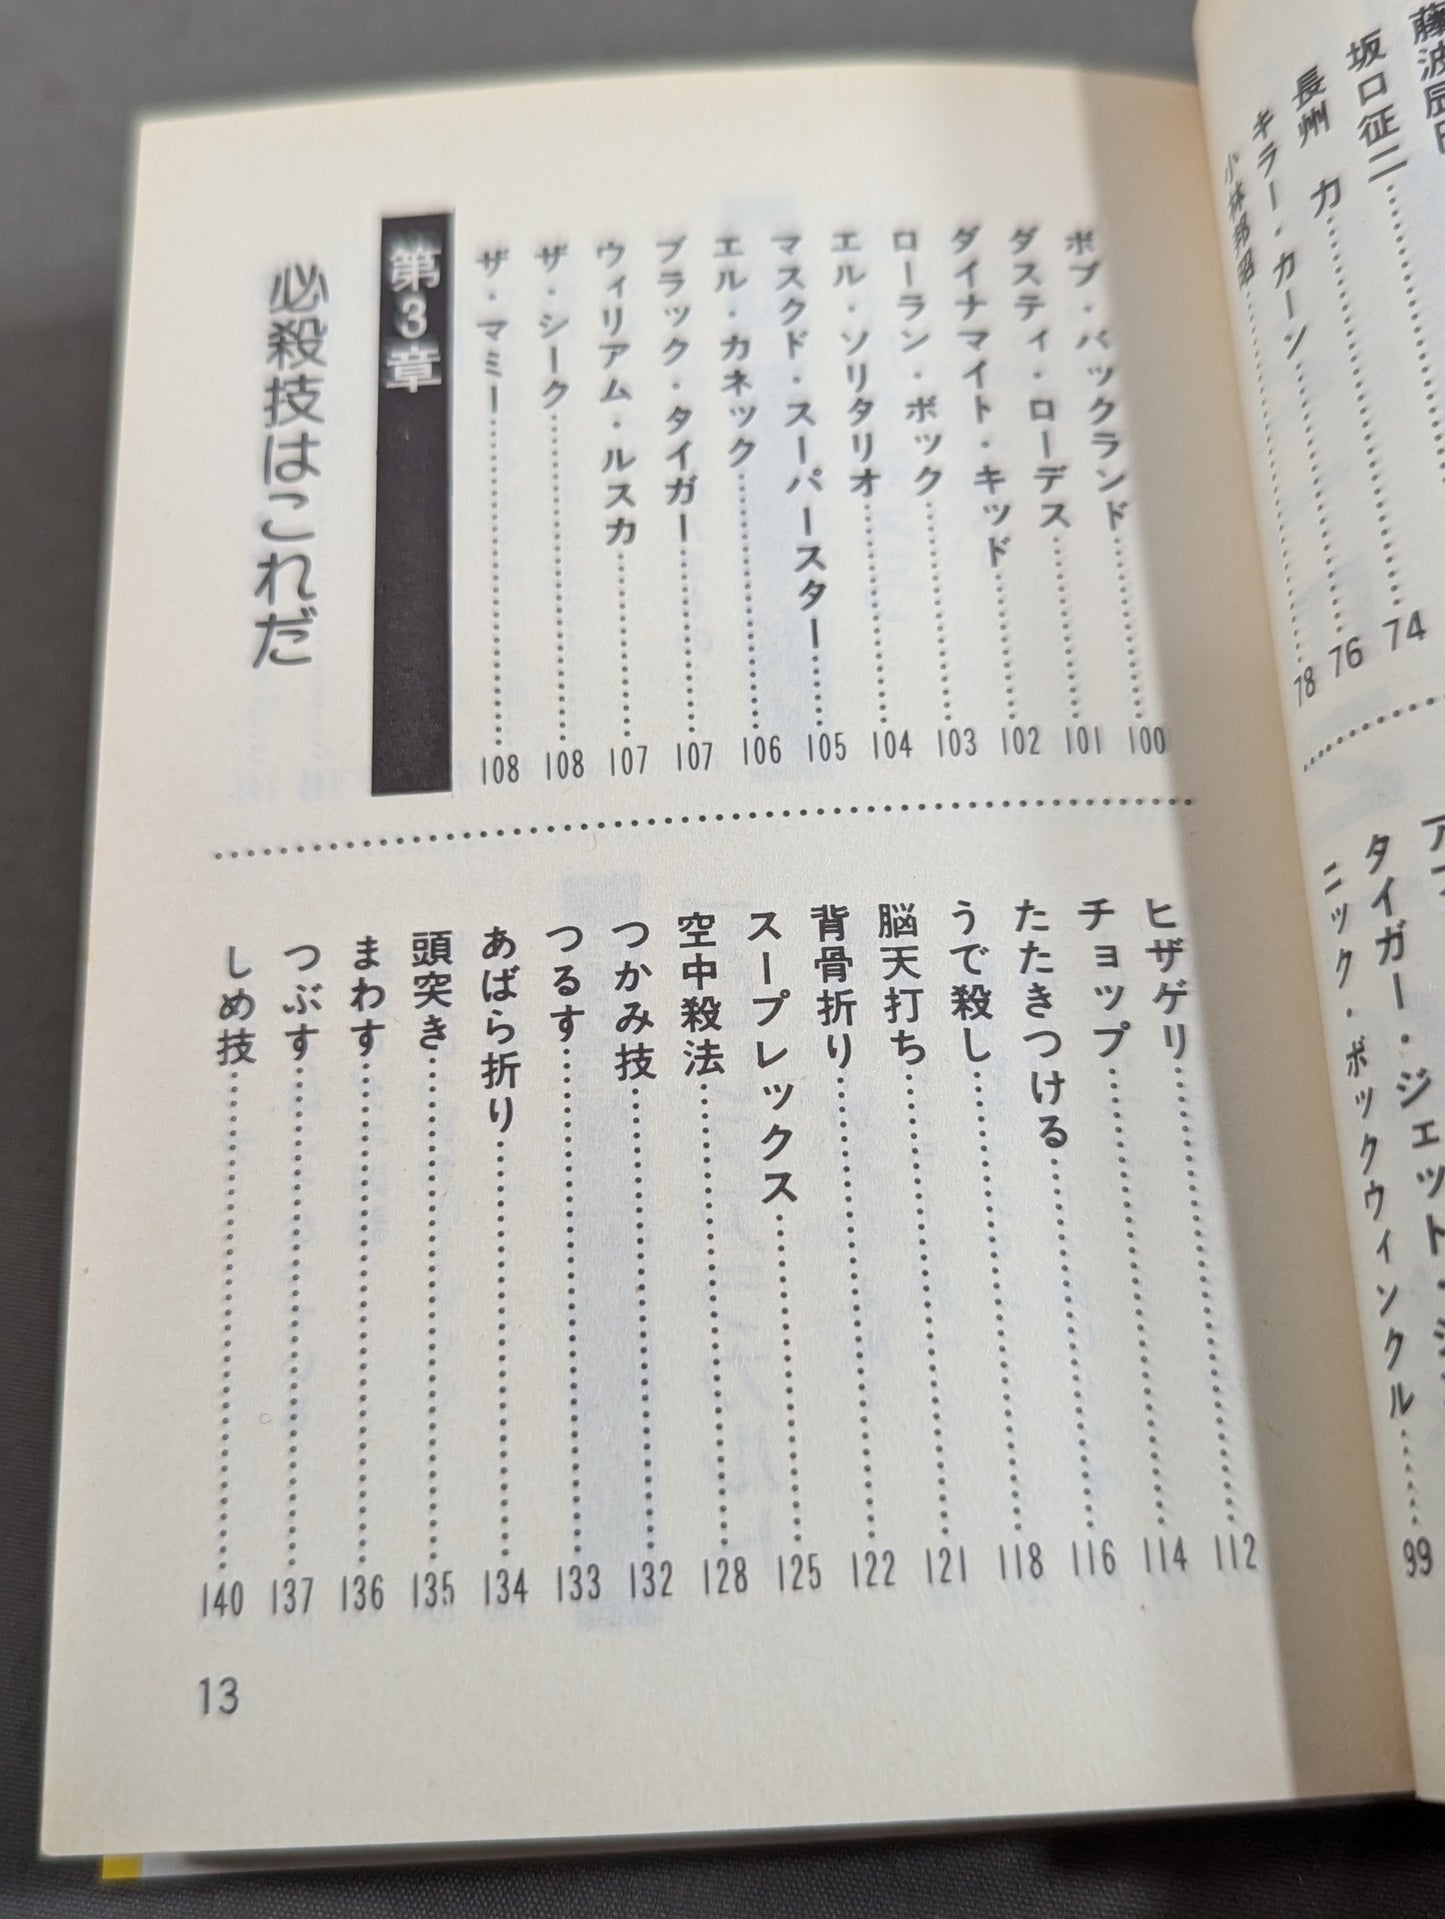 坂口征二……74
長州 力……76
キラー・カーン……78
小林邦昭……78
タイガー・ジェット・シン
ニック・ボックウィンクル……99
ボブ・バックランド……100
ダスティ・ローデス……101
ダイナマイト・キッド……102
ローラン・ボック……103
エル・ソリタリオ……104
マスクド・スーパースター……105
エル・カネック……106
ブラック・タイガー……107
ウィリアム・ルスカ……107
ザ・シーク……108
ザ・マミー……108
第3章
必殺技はこれだ
ヒザゲリ……112
チョップ……114
たたきつける……116
うで殺し……118
脳天打ち……121
背骨折り……122
スープレックス……125
空中殺法……128
つかみ技……132
つるす……133
あばら折り……134
頭突き……135
まわす……136
つぶす……137
しめ技……140
13